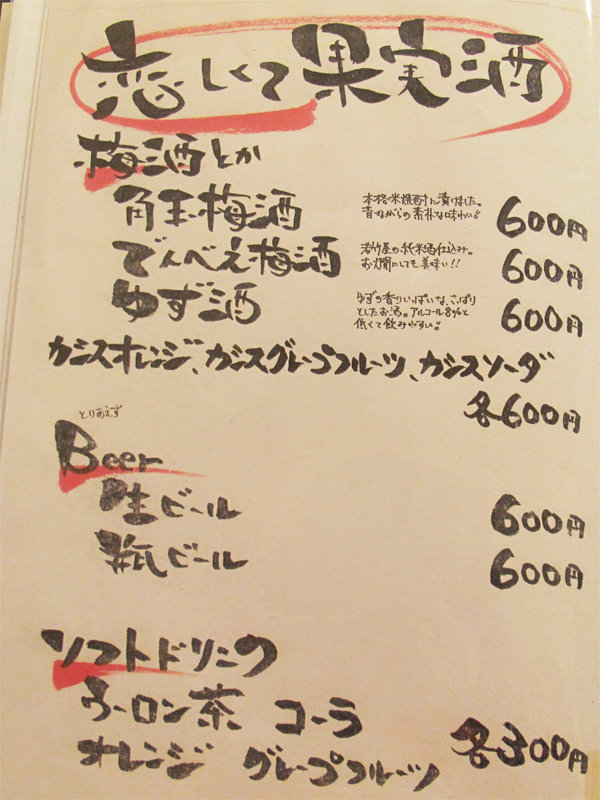 恋しくて果実酒
梅酒とか
角玉梅酒
本格米焼酎に漬けました。
昔ながらの素朴な味わい!!
600円
でんべえ梅酒
若竹屋の純米酒仕込み。
お燗にしても美味い!!
600円
ゆず酒
ゆずの香りいっぱいな、さっぱり
としたお酒。アルコール8%と
低くて飲みやすい!!
600円
カシスオレンジ、カシスグレープフルーツ、カシスソーダ
各600円
とりあえず
Beer
生ビール 600円
瓶ビール 600円
ソフトドリンク
ウーロン茶 コーラ
オレンジ グレープフルーツ
各300円